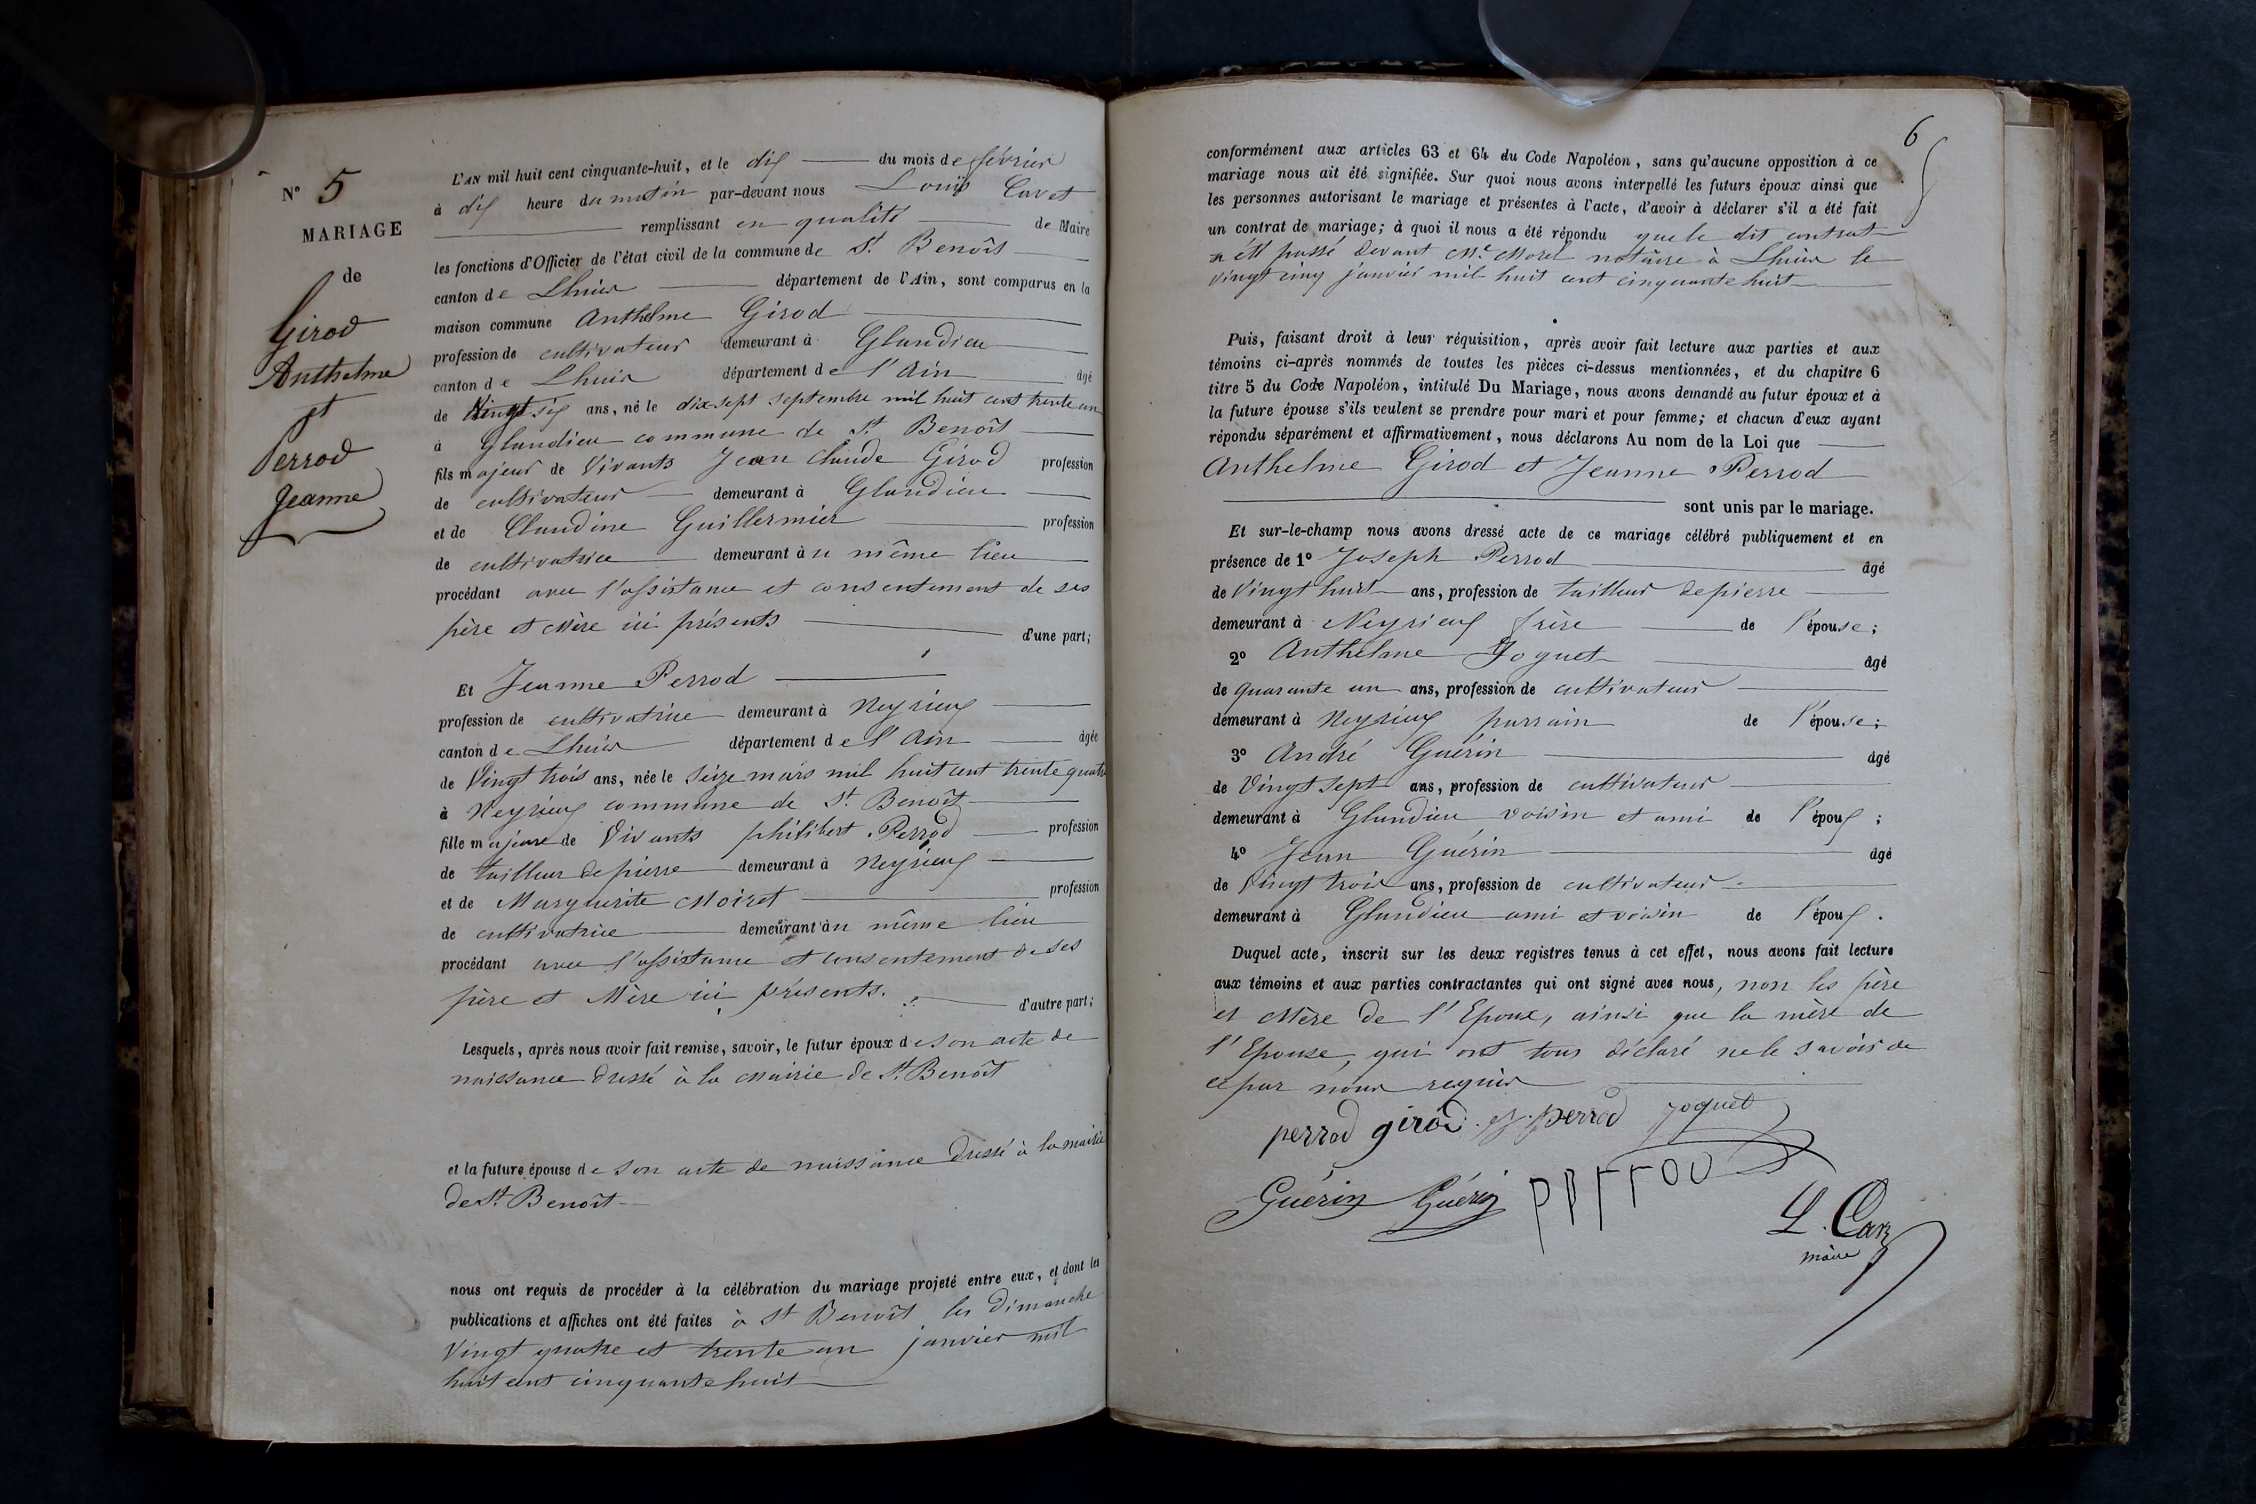 N° 5
MARIAGE
de
Girod
Anthelme
et
Perrod
Jeanne
L'AN mil huit cent cinquante-huit, et le dix du mois de février
à dix heure du matin par-devant nous Louis Cavet
remplissant en qualité de Maire
les fonctions d'Officier de l'état civil de la commune de St Benoît
canton de Lhuis département de l'Ain, sont comparus en la
maison commune Anthelme Girod
profession de cultivateur demeurant à Glandieu
canton de Lhuis département de l'Ain âgé
de Vingt six ans, né le dix-sept septembre mil huit cent trente un
à Glandieu commune de St Benoît
fils majeur de Vivants Jean Claude Girod profession
de cultivateur demeurant à Glandieu
et de Claudine Guillermier profession
de cultivatrice demeurant àu même lieu
procédant avec l'assistance et consentement de ses
père et Mère ici présents d'une part;
Et Jeanne Perrod
profession de cultivatrice demeurant à Neyrieux
canton de Lhuis département de l'Ain âgée
de Vingt trois ans, née le seize mars mil huit cent trente quatre
à Neyrieux commune de St Benoît
fille majeure de Vivants philibert Perrod profession
de tailleur de pierre demeurant à Neyrieux
et de Marguerite Moiret profession
de cultivatrice demeurant àu même lieu
procédant avec l'assistance et consentement de ses
père et Mère ici présents. d'autre part;
Lesquels, après nous avoir fait remise, savoir, le futur époux de son acte de
naissance dressé à la Mairie de St Benoît
et la future épouse de son acte de naissance dressé à la mairie
de St Benoît
nous ont requis de procéder à la célébration du mariage projeté entre eux, et dont les
publications et affiches ont été faites à St Benoît les dimanche
Vingt quatre et trente un janvier mil
huit cent cinquante huit
6
conformément aux articles 63 et 64 du Code Napoléon, sans qu'aucune opposition à ce
mariage nous ait été signifiée. Sur quoi nous avons interpellé les futurs époux ainsi que
les personnes autorisant le mariage et présentes à l'acte, d'avoir à déclarer s'il a été fait
un contrat de mariage; à quoi il nous a été répondu que le dit contrat
a été passé devant Me Morel notaire à Lhuis le
Vingt cinq janvier mil huit cent cinquante huit
Puis, faisant droit à leur réquisition, après avoir fait lecture aux parties et aux
témoins ci-après nommés de toutes les pièces ci-dessus mentionnées, et du chapitre 6
titre 5 du Code Napoléon, intitulé Du Mariage, nous avons demandé au futur époux et à
la future épouse s'ils veulent se prendre pour mari et pour femme; et chacun d'eux ayant
répondu séparément et affirmativement, nous déclarons Au nom de la Loi que
Anthelme Girod et Jeanne Perrod
sont unis par le mariage.
Et sur-le-champ nous avons dressé acte de ce mariage célébré publiquement et en
présence de 1° Joseph Perrod âgé
de Vingt huit ans, profession de tailleur de pierre
demeurant à Neyrieux frère de l'épouse;
2° Anthelme Joguet âgé
de quarante un ans, profession de cultivateur
demeurant à Neyrieux parrain de l'épouse;
3° André Guérin âgé
de Vingt sept ans, profession de cultivateur
demeurant à Glandieu voisin et ami de l'époux;
4° Jean Guérin âgé
de Vingt trois ans, profession de cultivateur
demeurant à Glandieu ami et voisin de l'époux.
Duquel acte, inscrit sur les deux registres tenus à cet effet, nous avons fait lecture
aux témoins et aux parties contractantes qui ont signé avec nous, non les père
et Mère de l'Epoux, ainsi que la mère de
l'Epouse, qui ont tous déclaré ne le savoir de
ce par nous requis
perrod girod perrod Joguet
Guérin Guérin perrod
maire